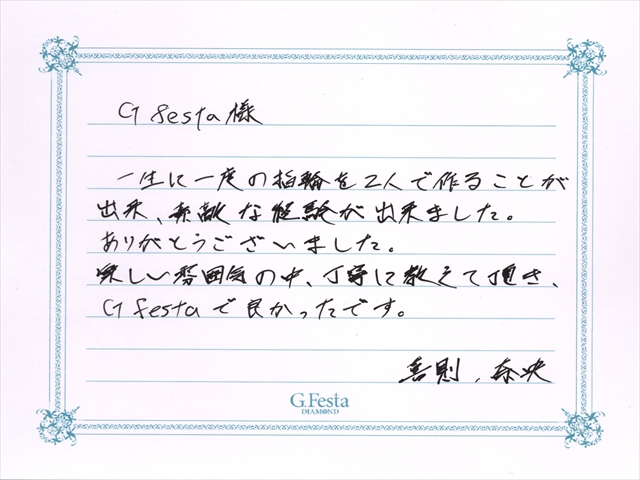 G festa 様
一生に一度の指輪を2人で作ることが
出来、素敵な経験が出来ました。
ありがとうございました。
楽しい雰囲気の中、丁寧に教えて頂き、
G festaで良かったです。
喜則、奈央
G.Festa
DIAMOND